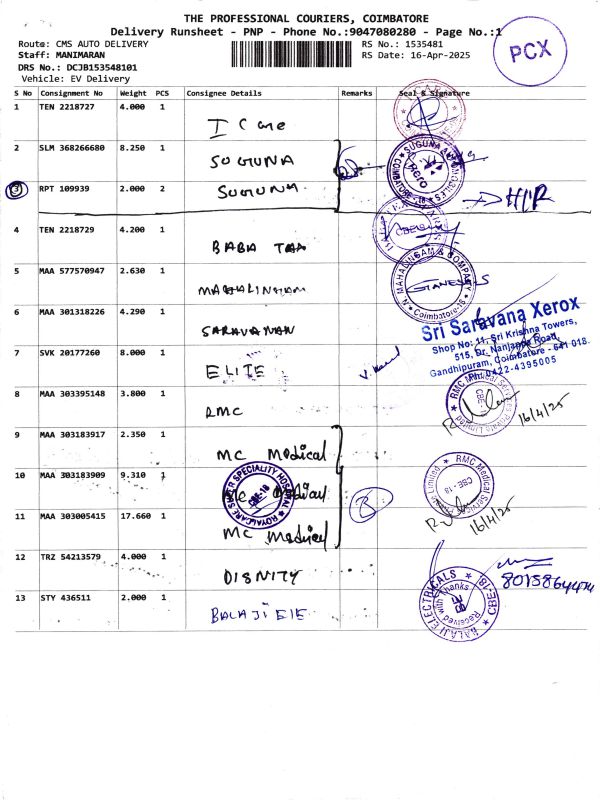 THE PROFESSIONAL COURIERS, COIMBATORE
Delivery Runsheet - PNP - Phone No.:9047080280 - Page No.:1
Route: CMS AUTO DELIVERY
RS No.: 1535481
Staff: MANIMARAN
RS Date: 16-Apr-2025
DRS No.: DCJB153548101
Vehicle: EV Delivery
PCX
S No Consignment No Weight PCS Consignee Details Remarks Seal & Signature
1 TEN 2218727 4.000 1 I Care
2 SLM 368266680 8.250 1 SUGUNA
SUGUNA
COIMBATORE-18
3 RPT 109939 2.000 2 SUGUNA
4 TEN 2218729 4.200 1 BABA
5 MAA 577570947 2.630 1 MAHALINGAM
N. MAHALINGAM & COMPANY
Coimbatore-18
6 MAA 301318226 4.290 1 SARAVANAN
Sri Saravana Xerox
Shop No: 11, Sri Krishna Towers,
515, Dr. Nanjappa Road,
Gandhipuram, Coimbatore - 641 018.
Ph: 0422-4395005
7 SVK 20177260 8.000 1 ELITE
8 MAA 303395148 3.800 1 RMC
RMC Medical Services Private Limited
CBE-18
16/4/25
9 MAA 303183917 2.350 1 MC Medical
10 MAA 303183909 9.310 1 MC Medical
ROYALCARE SUPER SPECIALITY HOSPITAL
CBE-18
RMC Medical Services Private Limited
CBE-18
11 MAA 303005415 17.660 1 MC Medical
16/4/25
12 TRZ 54213579 4.000 1 DISNITY
13 STY 436511 2.000 1 BALAJI ELE
BALAJI ELECTRICALS
CBE-18
Received with Thanks